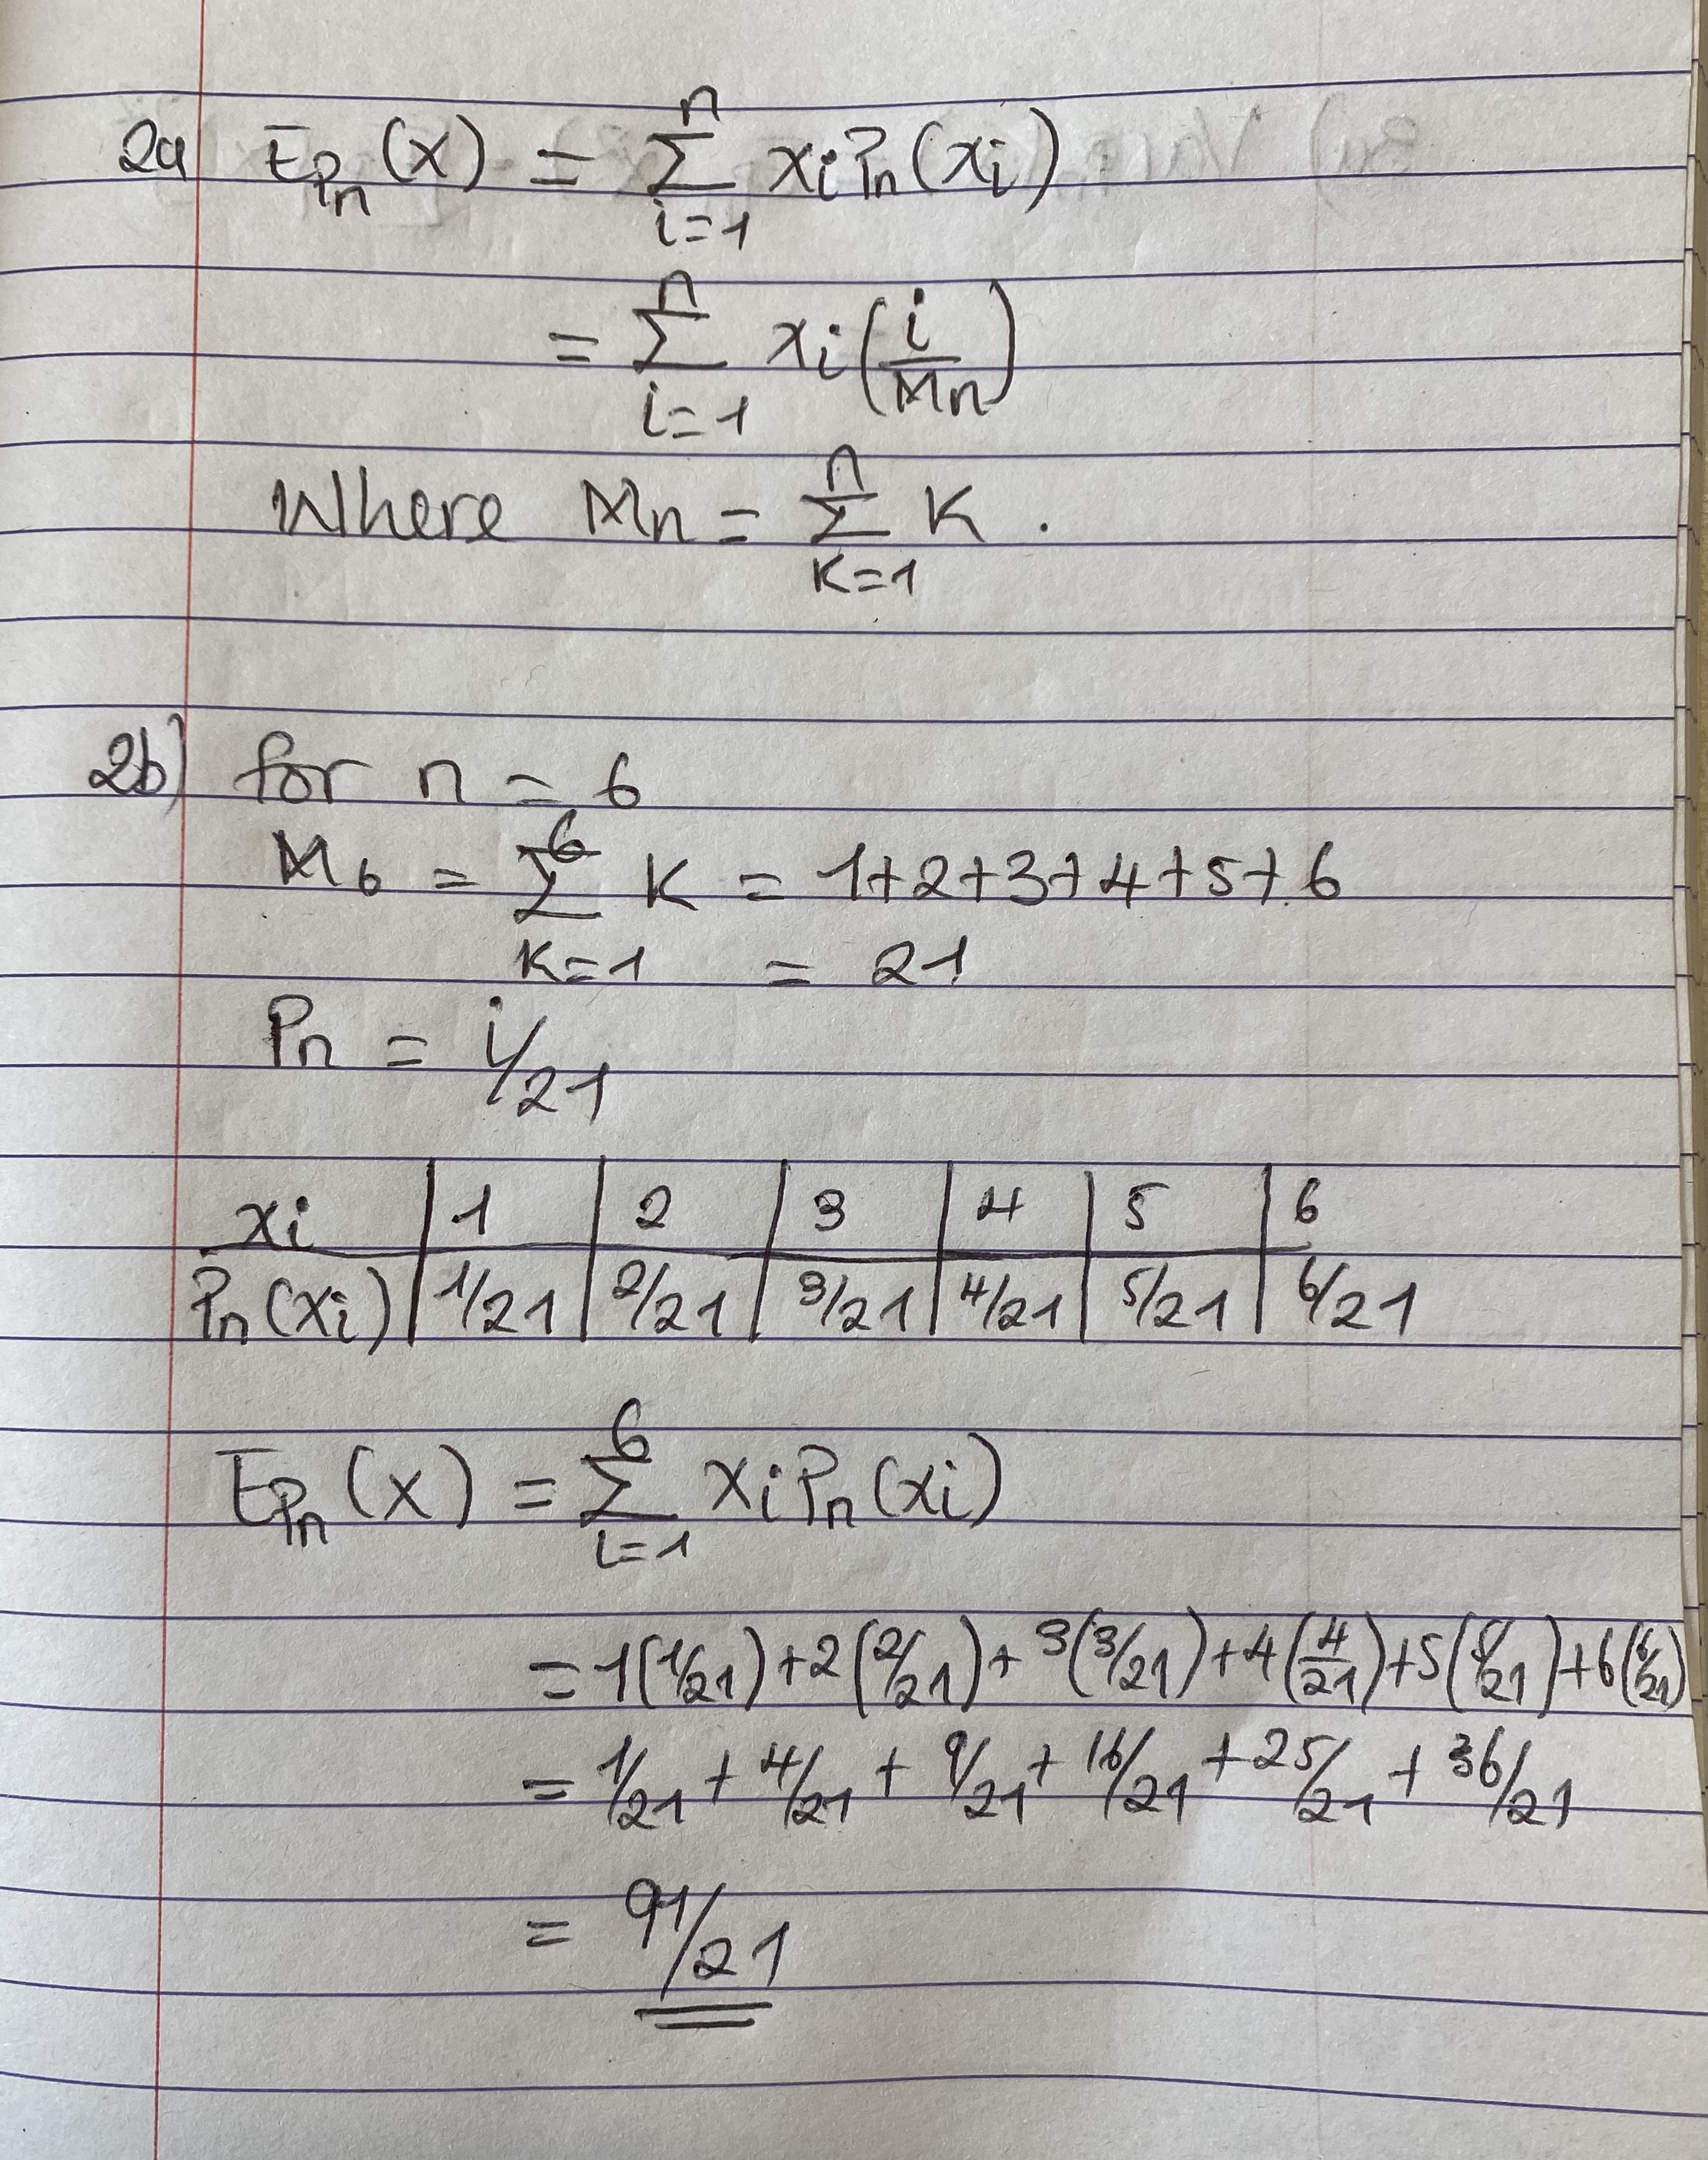 2a E_{Pn}(X) = \sum_{i=1}^{n} xi Pn(xi)
= \sum_{i=1}^{n} xi (i/Mn)
Where Mn = \sum_{K=1}^{n} K.
2b) for n = 6
M6 = \sum_{K=1}^{6} K = 1+2+3+4+5+6
= 21
Pn = i/21
xi | 1 | 2 | 3 | 4 | 5 | 6
Pn(xi) | 1/21 | 2/21 | 3/21 | 4/21 | 5/21 | 6/21
E_{Pn}(X) = \sum_{i=1}^{6} xi Pn(xi)
= 1(1/21) + 2(2/21) + 3(3/21) + 4(4/21) + 5(5/21) + 6(6/21)
= 1/21 + 4/21 + 9/21 + 16/21 + 25/21 + 36/21
= 91/21